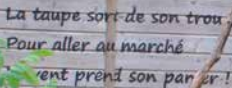 La taupe sort de son trou
Pour aller au marché
vent prend son panier !